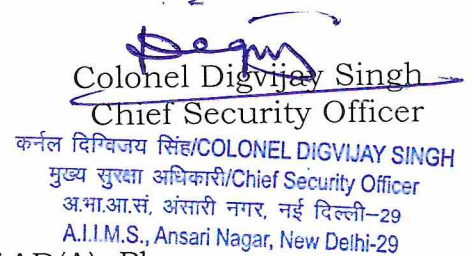 Colonel Digvijay Singh
Chief Security Officer
कर्नल दिग्विजय सिंह/COLONEL DIGVIJAY SINGH
मुख्य सुरक्षा अधिकारी/Chief Security Officer
अ.भा.आ.सं, अंसारी नगर, नई दिल्ली–29
A.I.I.M.S., Ansari Nagar, New Delhi-29